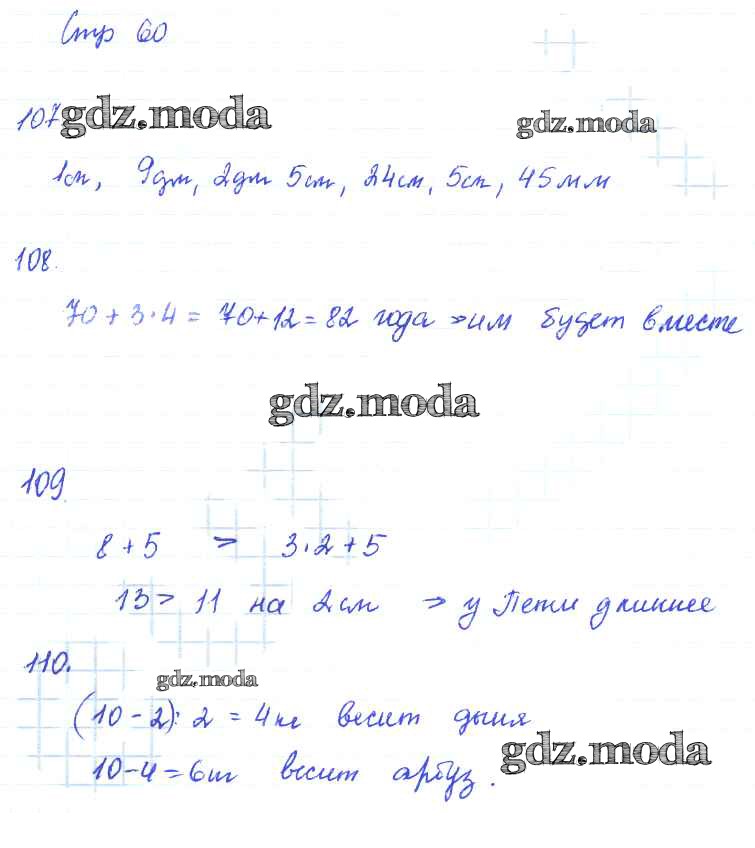 Стр 60
107 gdz.moda gdz.moda
1см, 9дм, 2дм 5см, 24см, 5см, 45мм
108.
70 + 3·4 = 70+12 = 82 года => им будет вместе
gdz.moda
109
8 + 5 > 3·2 + 5
13 > 11 на 2см => у Пети длиннее
110.
gdz.moda
(10-2):2 = 4кг весит дыня
10-4=6кг весит арбуз.
gdz.moda